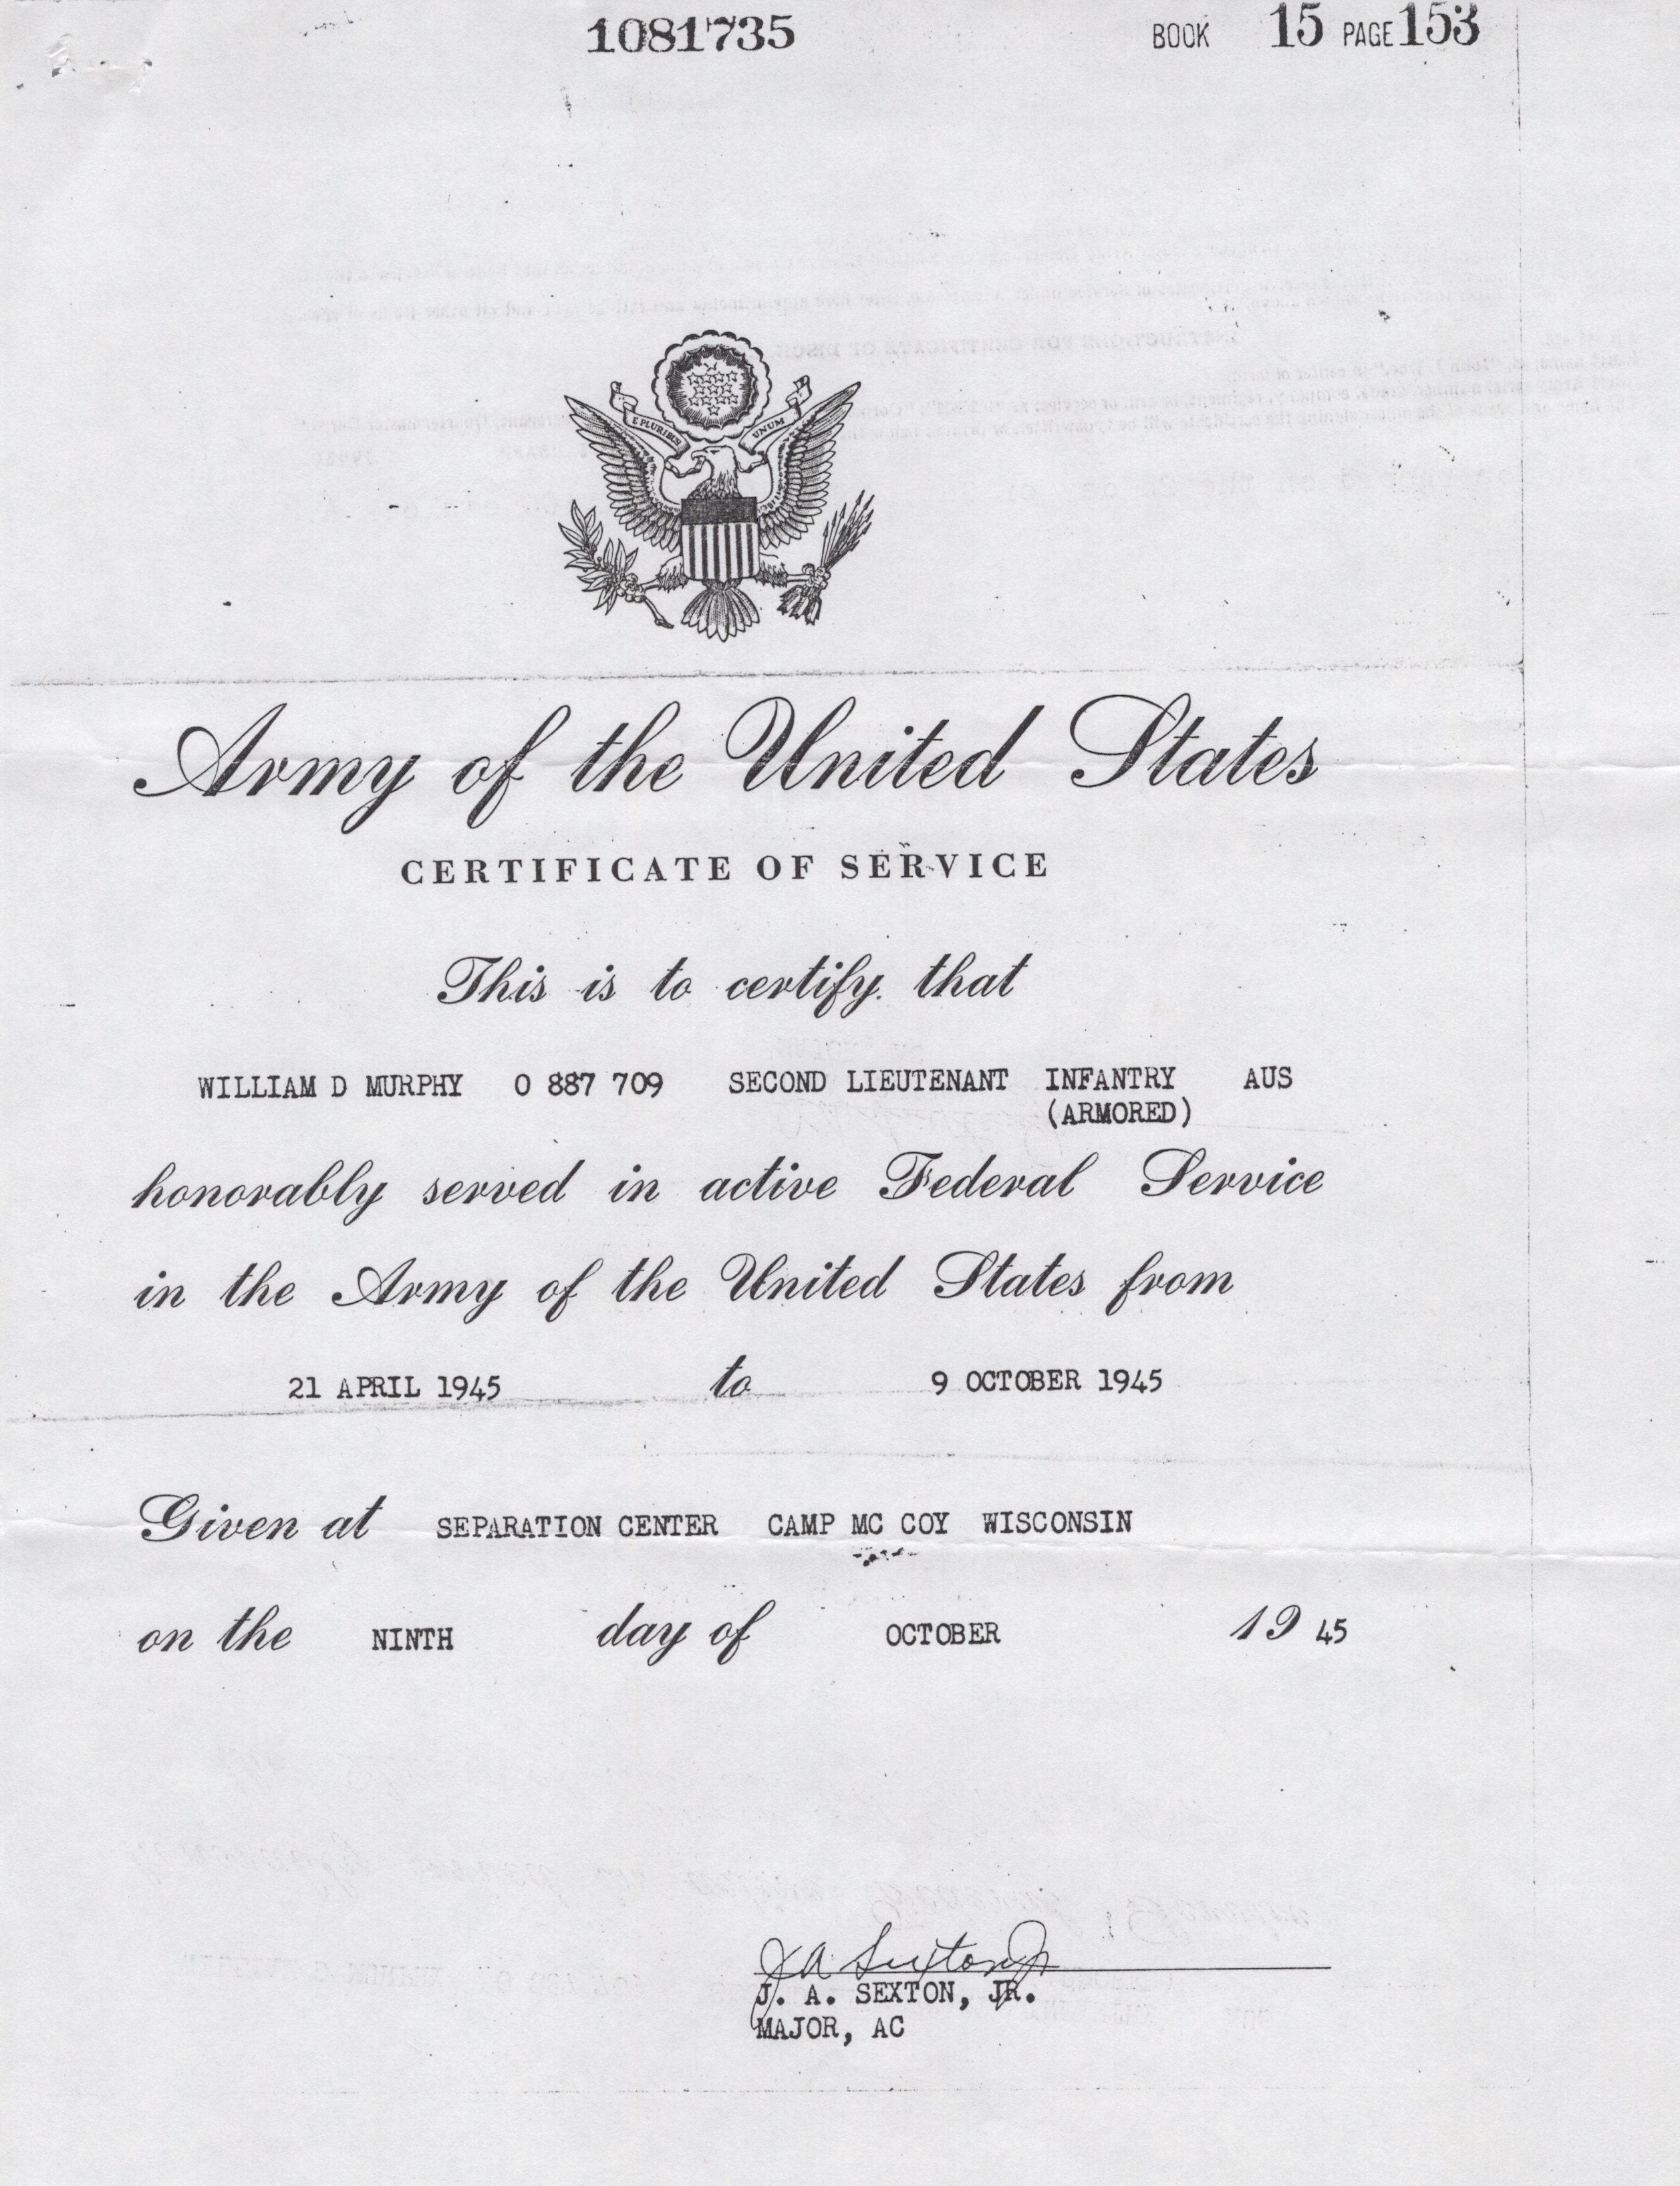 1081735 BOOK 15 PAGE 153
E PLURIBUS UNUM
Army of the United States
CERTIFICATE OF SERVICE
This is to certify that
WILLIAM D MURPHY O 887 709 SECOND LIEUTENANT INFANTRY AUS
(ARMORED)
honorably served in active Federal Service
in the Army of the United States from
21 APRIL 1945 to 9 OCTOBER 1945
Given at SEPARATION CENTER CAMP MC COY WISCONSIN
on the NINTH day of OCTOBER 19 45
J A Sexton Jr
J. A. SEXTON, JR.
MAJOR, AC